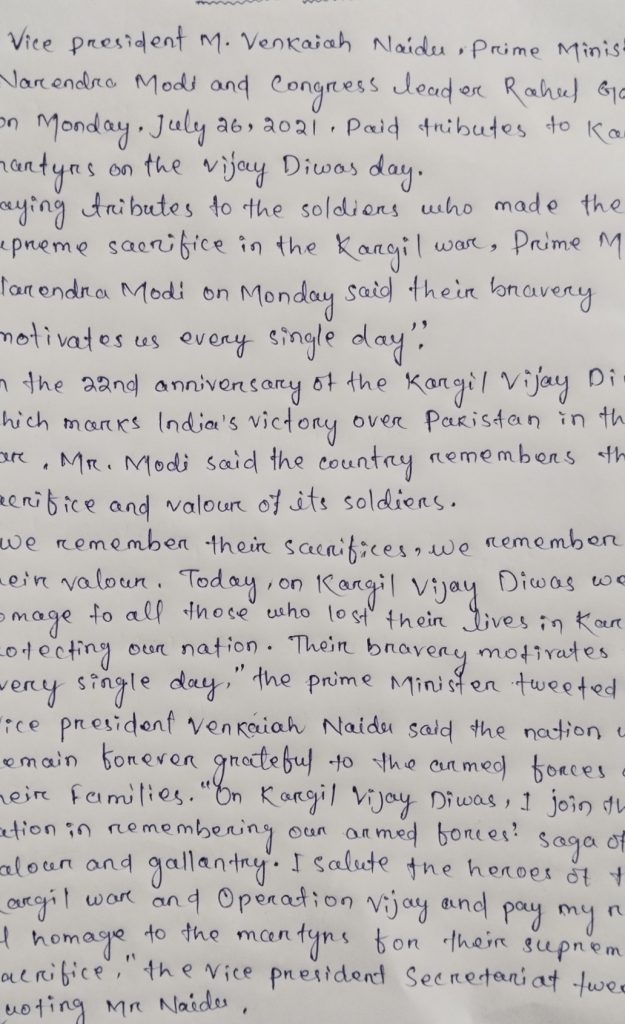 Vice president M. Venkaiah Naidu, Prime Minis
Narendra Modi and Congress leader Rahul Ga
on Monday, July 26, 2021. Paid tributes to Ka
martyrs on the Vijay Diwas day.
aying tributes to the soldiers who made the
upreme sacrifice in the Kargil war, Prime M
Narendra Modi on Monday said their bravery
motivates us every single day".
n the 22nd anniversary of the Kargil Vijay Di
hich marks India's victory over Pakistan in th
are, Mr. Modi said the country remembers th
acrifice and valour of its soldiers.
we remember their sacrifices, we remember
heir valour. Today, on Kargil Vijay Diwas we
omage to all those who lost their lives in Kar
rotecting our nation. Their bravery motivates
very single day," the prime Minister tweeted
ice president Venkaiah Naidu said the nation w
emain forever grateful to the armed forces a
heir Families. "On Kargil Vijay Diwas, I join th
ation in remembering our armed forces' saga of
alour and gallantry. I salute the heroes of t
Kargil war and Operation Vijay and pay my r
l homage to the martyrs for their suprem
acrifice," the Vice president Secretariat twee
uoting Mr Naidu.